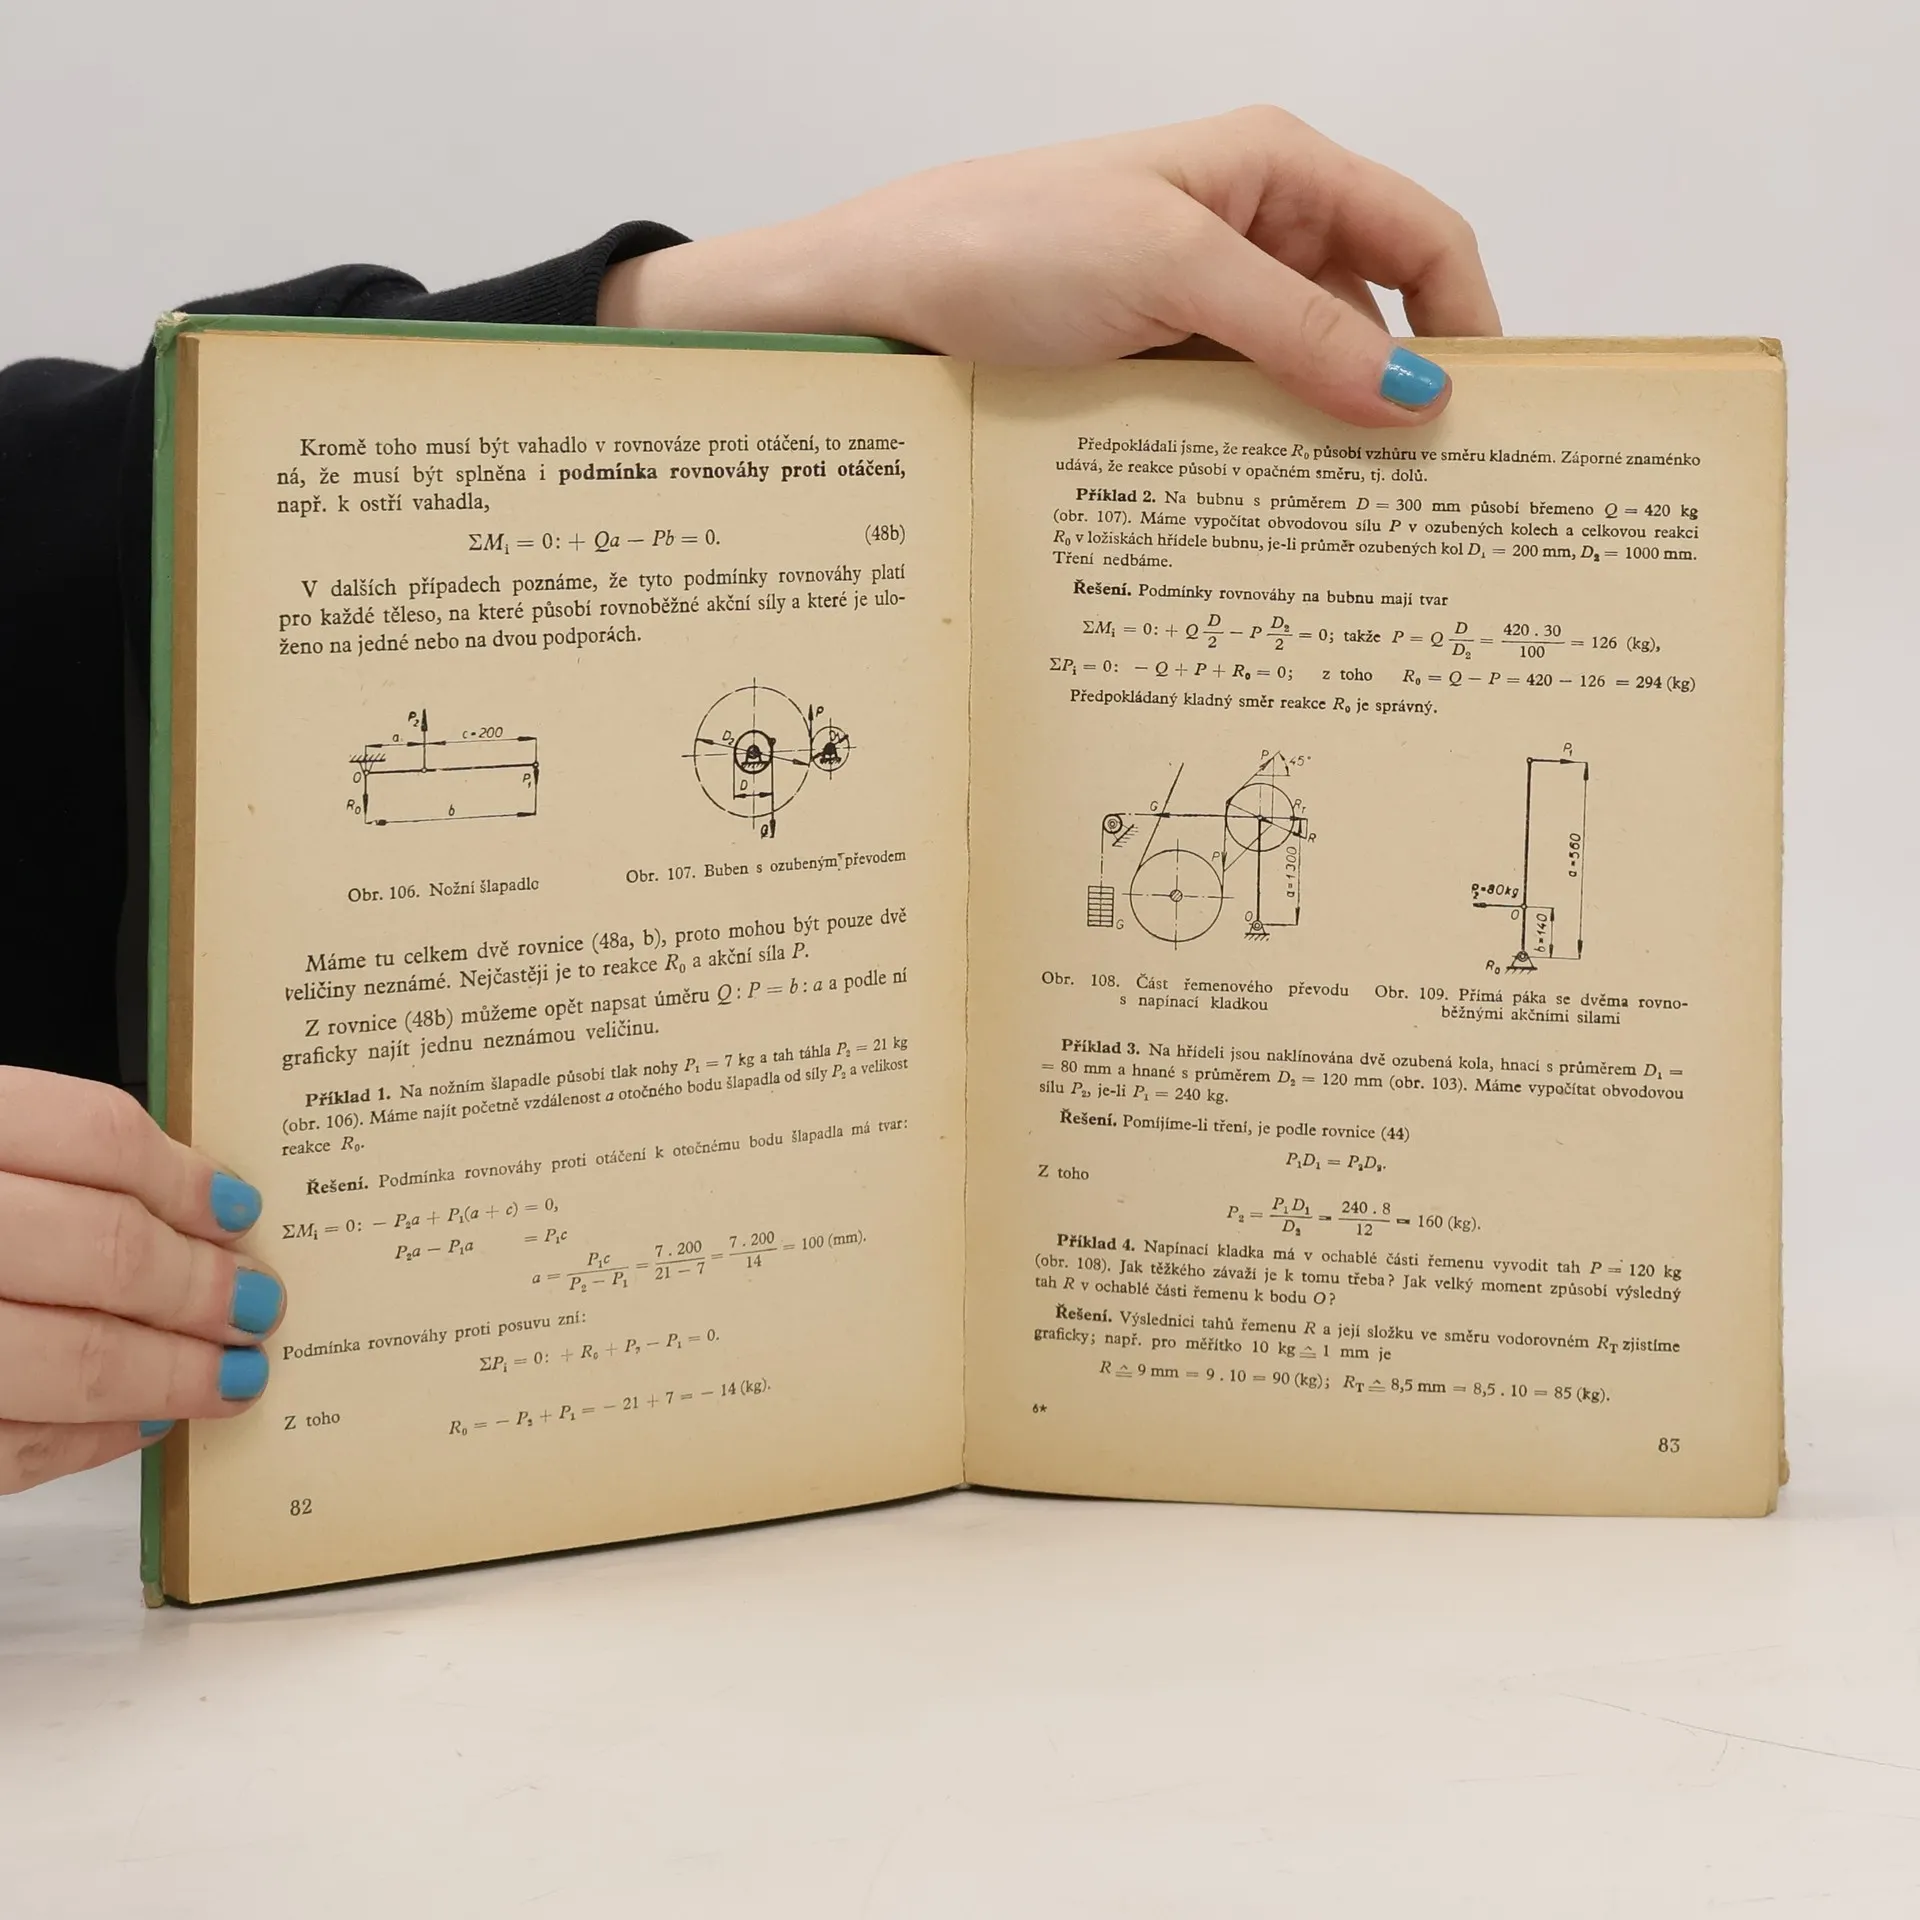 Kromě toho musí být vahadlo v rovnováze proti otáčení, to zname-
ná, že musí být splněna i podmínka rovnováhy proti otáčení,
např. k ostří vahadla,
ΣMᵢ = 0: + Qa − Pb = 0. (48b)
V dalších případech poznáme, že tyto podmínky rovnováhy platí
pro každé těleso, na které působí rovnoběžné akční síly a které je ulo-
ženo na jedné nebo na dvou podporách.
P₂
a
c=200
O
P₁
R₀
b
Obr. 106. Nožní šlapadlo
P
D₂
D₁
D
Q
Obr. 107. Buben s ozubeným převodem
Máme tu celkem dvě rovnice (48a, b), proto mohou být pouze dvě
veličiny neznámé. Nejčastěji je to reakce R₀ a akční síla P.
Z rovnice (48b) můžeme opět napsat úměru Q : P = b : a a podle ní
graficky najít jednu neznámou veličinu.
Příklad 1. Na nožním šlapadle působí tlak nohy P₁ = 7 kg a tah táhla P₂ = 21 kg
(obr. 106). Máme najít početně vzdálenost a otočného bodu šlapadla od síly P₂ a velikost
reakce R₀.
Řešení. Podmínka rovnováhy proti otáčení k otočnému bodu šlapadla má tvar:
ΣMᵢ = 0: − P₂a + P₁(a + c) = 0,
P₂a − P₁a = P₁c
a = P₁c / (P₂ − P₁) = 7 . 200 / (21 − 7) = 7 . 200 / 14 = 100 (mm).
Podmínka rovnováhy proti posuvu zní:
ΣPᵢ = 0: + R₀ + P₂ − P₁ = 0.
Z toho
R₀ = − P₂ + P₁ = − 21 + 7 = − 14 (kg).
82
Předpokládali jsme, že reakce R₀ působí vzhůru ve směru kladném. Záporné znaménko
udává, že reakce působí v opačném směru, tj. dolů.
Příklad 2. Na bubnu s průměrem D = 300 mm působí břemeno Q = 420 kg
(obr. 107). Máme vypočítat obvodovou sílu P v ozubených kolech a celkovou reakci
R₀ v ložiskách hřídele bubnu, je-li průměr ozubených kol D₁ = 200 mm, D₂ = 1000 mm.
Tření nedbáme.
Řešení. Podmínky rovnováhy na bubnu mají tvar
ΣMᵢ = 0: + Q D/2 − P D₂/2 = 0; takže P = Q D/D₂ = 420 . 30 / 100 = 126 (kg),
ΣPᵢ = 0: − Q + P + R₀ = 0; z toho R₀ = Q − P = 420 − 126 = 294 (kg)
Předpokládaný kladný směr reakce R₀ je správný.
P
45°
G
R_T
R
P
a=1300
O
G
Obr. 108. Část řemenového převodu
s napínací kladkou
P₁
a=560
P₂=80kg
O
b=140
R₀
Obr. 109. Přímá páka se dvěma rovno-
běžnými akčními silami
Příklad 3. Na hřídeli jsou naklínována dvě ozubená kola, hnací s průměrem D₁ =
= 80 mm a hnané s průměrem D₂ = 120 mm (obr. 103). Máme vypočítat obvodovou
sílu P₂, je-li P₁ = 240 kg.
Řešení. Pomíjíme-li tření, je podle rovnice (44)
P₁D₁ = P₂D₂.
Z toho
P₂ = P₁D₁ / D₂ = 240 . 8 / 12 = 160 (kg).
Příklad 4. Napínací kladka má v ochablé části řemenu vyvodit tah P = 120 kg
(obr. 108). Jak těžkého závaží je k tomu třeba? Jak velký moment způsobí výsledný
tah R v ochablé části řemenu k bodu O?
Řešení. Výslednici tahů řemenu R a její složku ve směru vodorovném R_T zjistíme
graficky; např. pro měřítko 10 kg ≙ 1 mm je
R ≙ 9 mm = 9 . 10 = 90 (kg); R_T ≙ 8,5 mm = 8,5 . 10 = 85 (kg).
6*
83